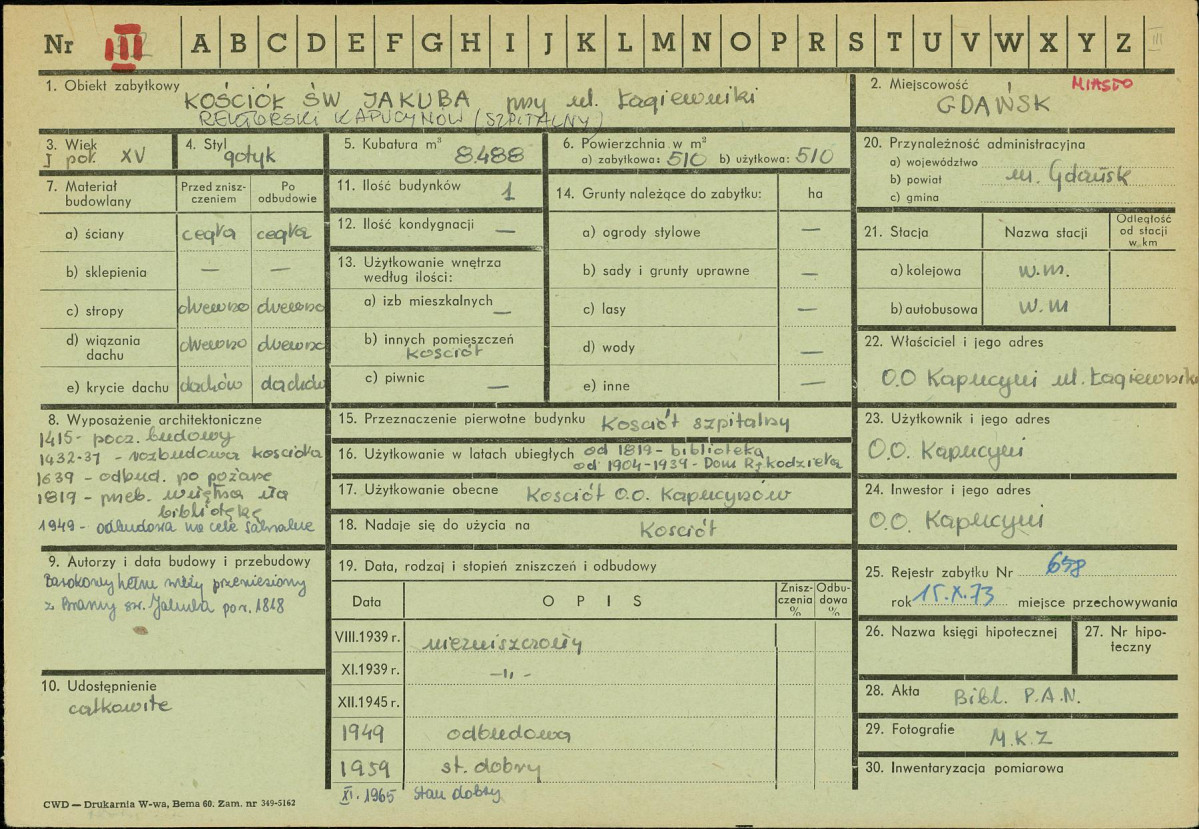 Nr III A B C D E F G H I J K L M N O P R S T U V W X Y Z III
1. Obiekt zabytkowy
KOŚCIÓŁ ŚW JAKUBA przy ul. Łagiewniki
REKTORSKI KAPUCYNÓW (SZPITALNY)
2. Miejscowość MIASTO
GDAŃSK
3. Wiek
I poł. XV
4. Styl
gotyk
5. Kubatura m³
8.488
6. Powierzchnia w m²
a) zabytkowa: 510 b) użytkowa: 510
7. Materiał budowlany
Przed zniszczeniem
Po odbudowie
a) ściany cegła cegła
b) sklepienia — —
c) stropy drewno drewno
d) wiązania dachu drewno drewno
e) krycie dachu dachów dachów
8. Wyposażenie architektoniczne
1415 - pocz. budowy
1432-37 - rozbudowa kościoła
1639 - odbud. po pożarze
1819 - przeb. wnętrza na
bibliotekę
1949 - odbudowa na cele sakralne
9. Autorzy i data budowy i przebudowy
Barokowy hełm wieży przeniesiony
z Bramy św. Jakuba po r. 1818
10. Udostępnienie
całkowite
11. Ilość budynków 1
12. Ilość kondygnacji —
13. Użytkowanie wnętrza
według ilości:
a) izb mieszkalnych —
b) innych pomieszczeń
kościół
c) piwnic —
14. Grunty należące do zabytku: ha
a) ogrody stylowe —
b) sady i grunty uprawne —
c) lasy —
d) wody —
e) inne —
15. Przeznaczenie pierwotne budynku Kościół szpitalny
16. Użytkowanie w latach ubiegłych od 1819 - biblioteka
od 1904-1939 - Dom Rękodzieła
17. Użytkowanie obecne Kościół O.o. Kapucynów
18. Nadaje się do użycia na Kościół
19. Data, rodzaj i stopień zniszczeń i odbudowy
Data OPIS Zniszczenia % Odbudowa %
VIII.1939 r. niezniszczony
XI.1939 r. -"-
XII.1945 r.
1949 odbudowa
1959 st. dobry
XI. 1965 Stan dobry
20. Przynależność administracyjna
a) województwo
b) powiat m. Gdańsk
c) gmina
21. Stacja Nazwa stacji Odległość od stacji w km
a) kolejowa w.m.
b) autobusowa w.m
22. Właściciel i jego adres
O.O Kapucyni ul. Łagiewniki
23. Użytkownik i jego adres
O.O. Kapucyni
24. Inwestor i jego adres
O.O. Kapucyni
25. Rejestr zabytku Nr 658
rok 15.X.73 miejsce przechowywania
26. Nazwa księgi hipotecznej
27. Nr hipoteczny
28. Akta Bibl. P.A.N.
29. Fotografie M.K.Z
30. Inwentaryzacja pomiarowa
CWD — Drukarnia W-wa, Bema 60. Zam. nr 349-5162